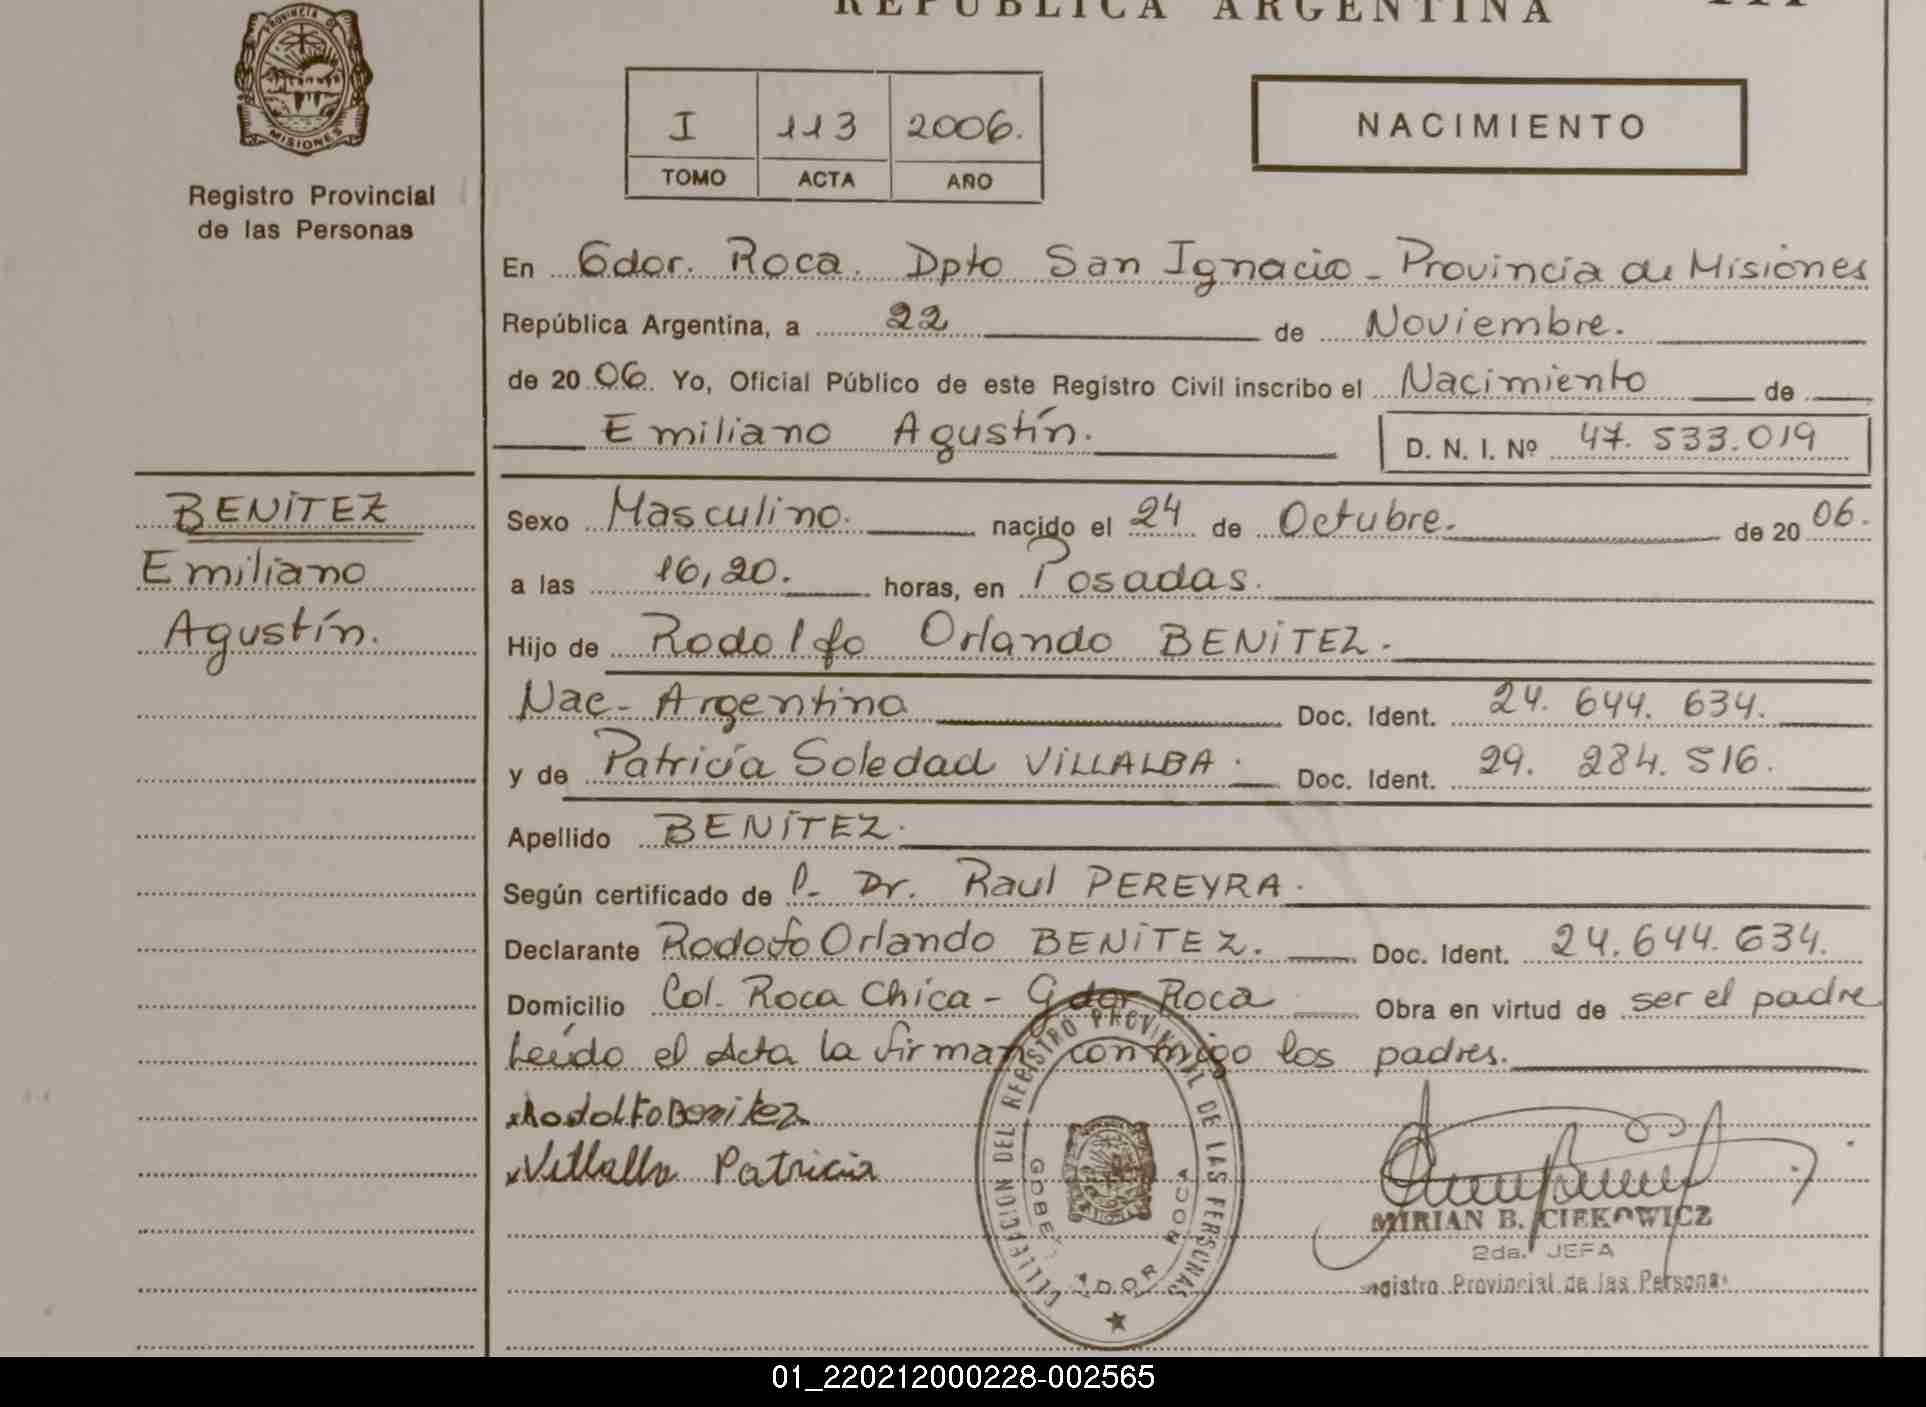 REPUBLICA ARGENTINA
PROVINCIA DE
MISIONES
Registro Provincial
de las Personas
I 113 2006.
TOMO ACTA AÑO
NACIMIENTO
En Gdor. Roca. Dpto San Ignacio - Provincia de Misiones
República Argentina, a 22 de Noviembre.
de 20 06. Yo, Oficial Público de este Registro Civil inscribo el Nacimiento de
Emiliano Agustín.
D. N. I. Nº 47. 533.019
BENITEZ
Emiliano
Agustín.
Sexo Masculino. nacido el 24 de Octubre. de 20 06.
a las 16,20. horas, en Posadas.
Hijo de Rodolfo Orlando BENITEZ.
Nac- Argentina Doc. Ident. 24. 644. 634.
y de Patricia Soledad VILLALBA. Doc. Ident. 29. 284. 516.
Apellido BENITEZ.
Según certificado de P. Dr. Raul PEREYRA.
Declarante Rodofo Orlando BENITEZ. Doc. Ident. 24.644.634.
Domicilio Col. Roca Chica - Gdor Roca Obra en virtud de ser el padre
Leído el Acta la firman conmigo los padres.
Rodolfo Benitez
Villalba Patricia
DEL REGISTRO PROVINCIAL DE LAS PERSONAS
ROCA
MIRIAN B. CIEKOWICZ
2da. JEFA
Registro Provincial de las Personas
01_220212000228-002565